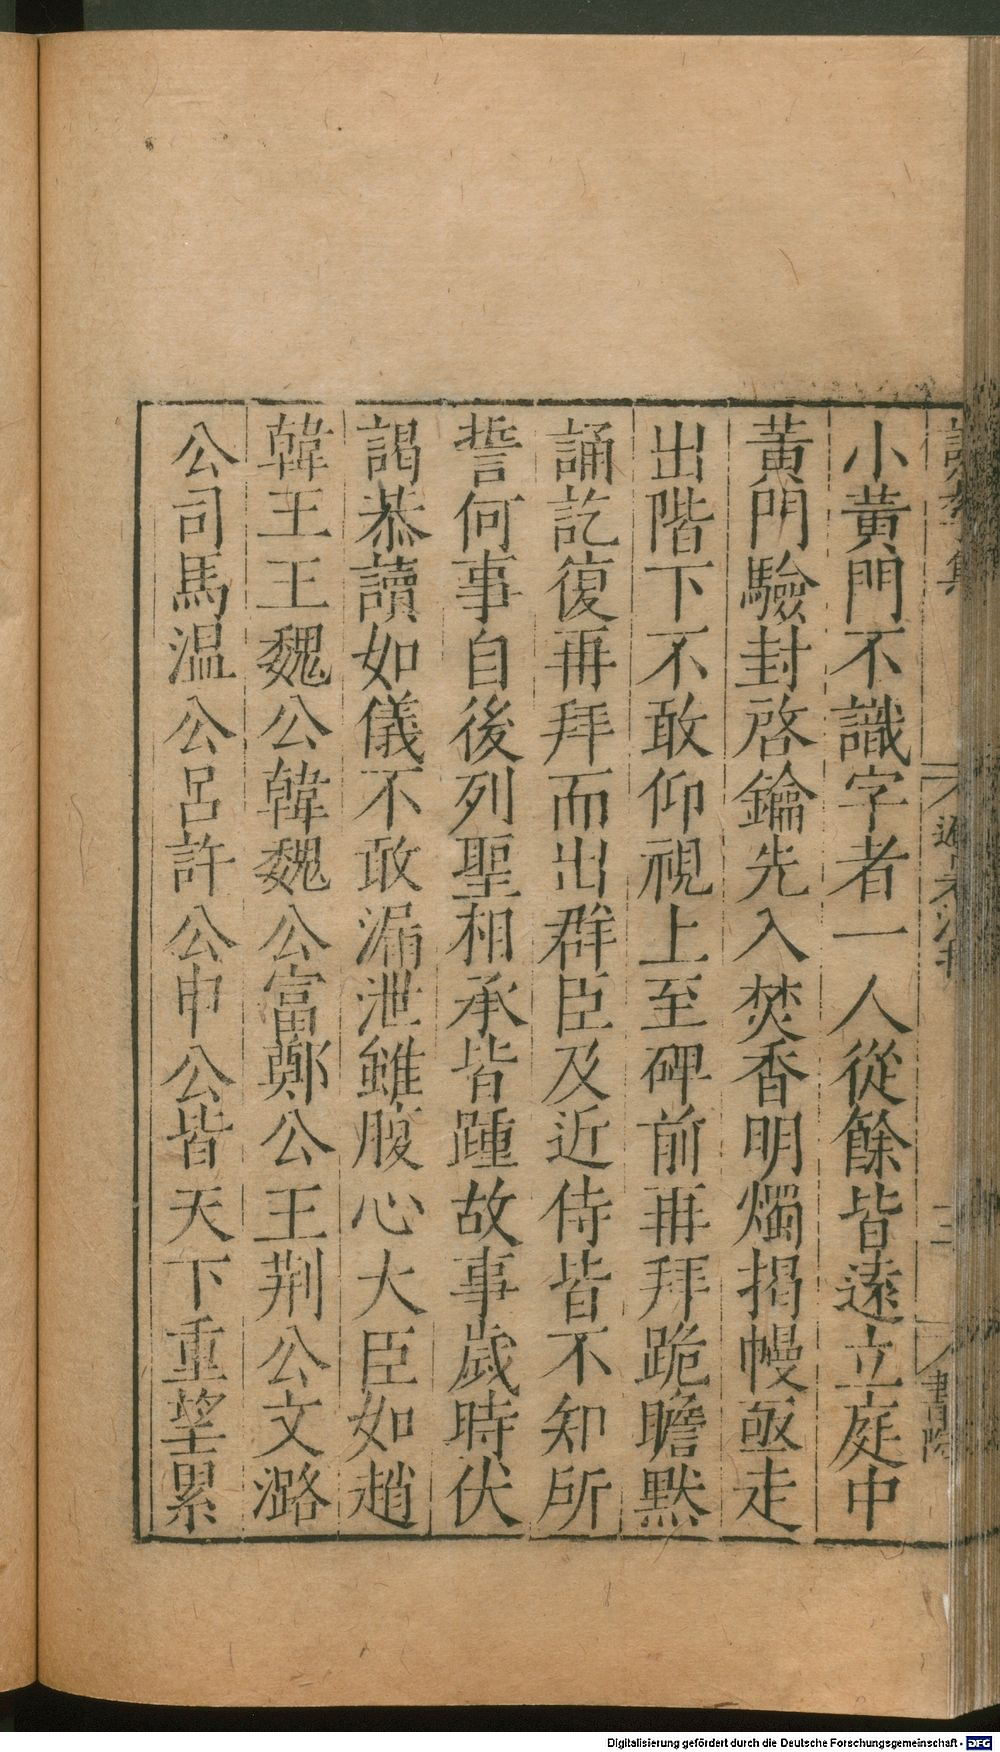 小黄門不識字者一人從餘皆遠立庭中
黄門驗封啓鑰先入焚香明燭揭幔亟走
出階下不敢仰視上至碑前再拜跪瞻黙
誦訖復再拜而出群臣及近侍皆不知所
誓何事自後列聖相承皆踵故事歲時伏
謁恭讀如儀不敢漏泄雖腹心大臣如趙
韓王王魏公韓魏公富鄭公王荆公文潞
公司馬温公呂許公申公皆天下重望累
Digitalisierung gefördert durch die Deutsche Forschungsgemeinschaft - DFG